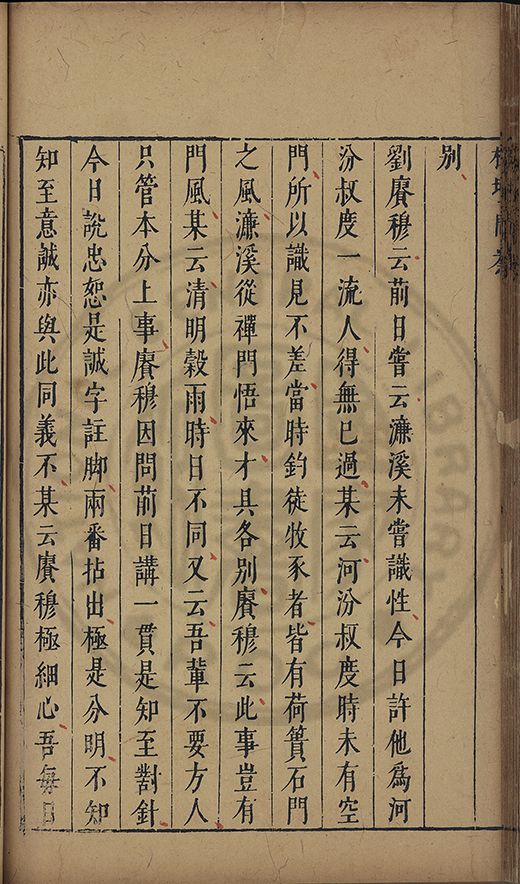 榕壇問業
別
劉賡穆云前日嘗云濂溪未嘗識性今日許他爲河
汾叔度一流人得無已過某云河汾叔度時未有空
門所以識見不差當時鈞徒牧豕者皆有荷蕢石門
之風濂溪從禪門悟來才具各別賡穆云此事豈有
門風某云清明穀雨時日不同又云吾輩不要方人
只管本分上事賡穆因問前日講一貫是知至對針
今日說忠恕是誠字註脚兩番拈出極是分明不知
知至意誠亦與此同義不某云賡穆極細心吾每日